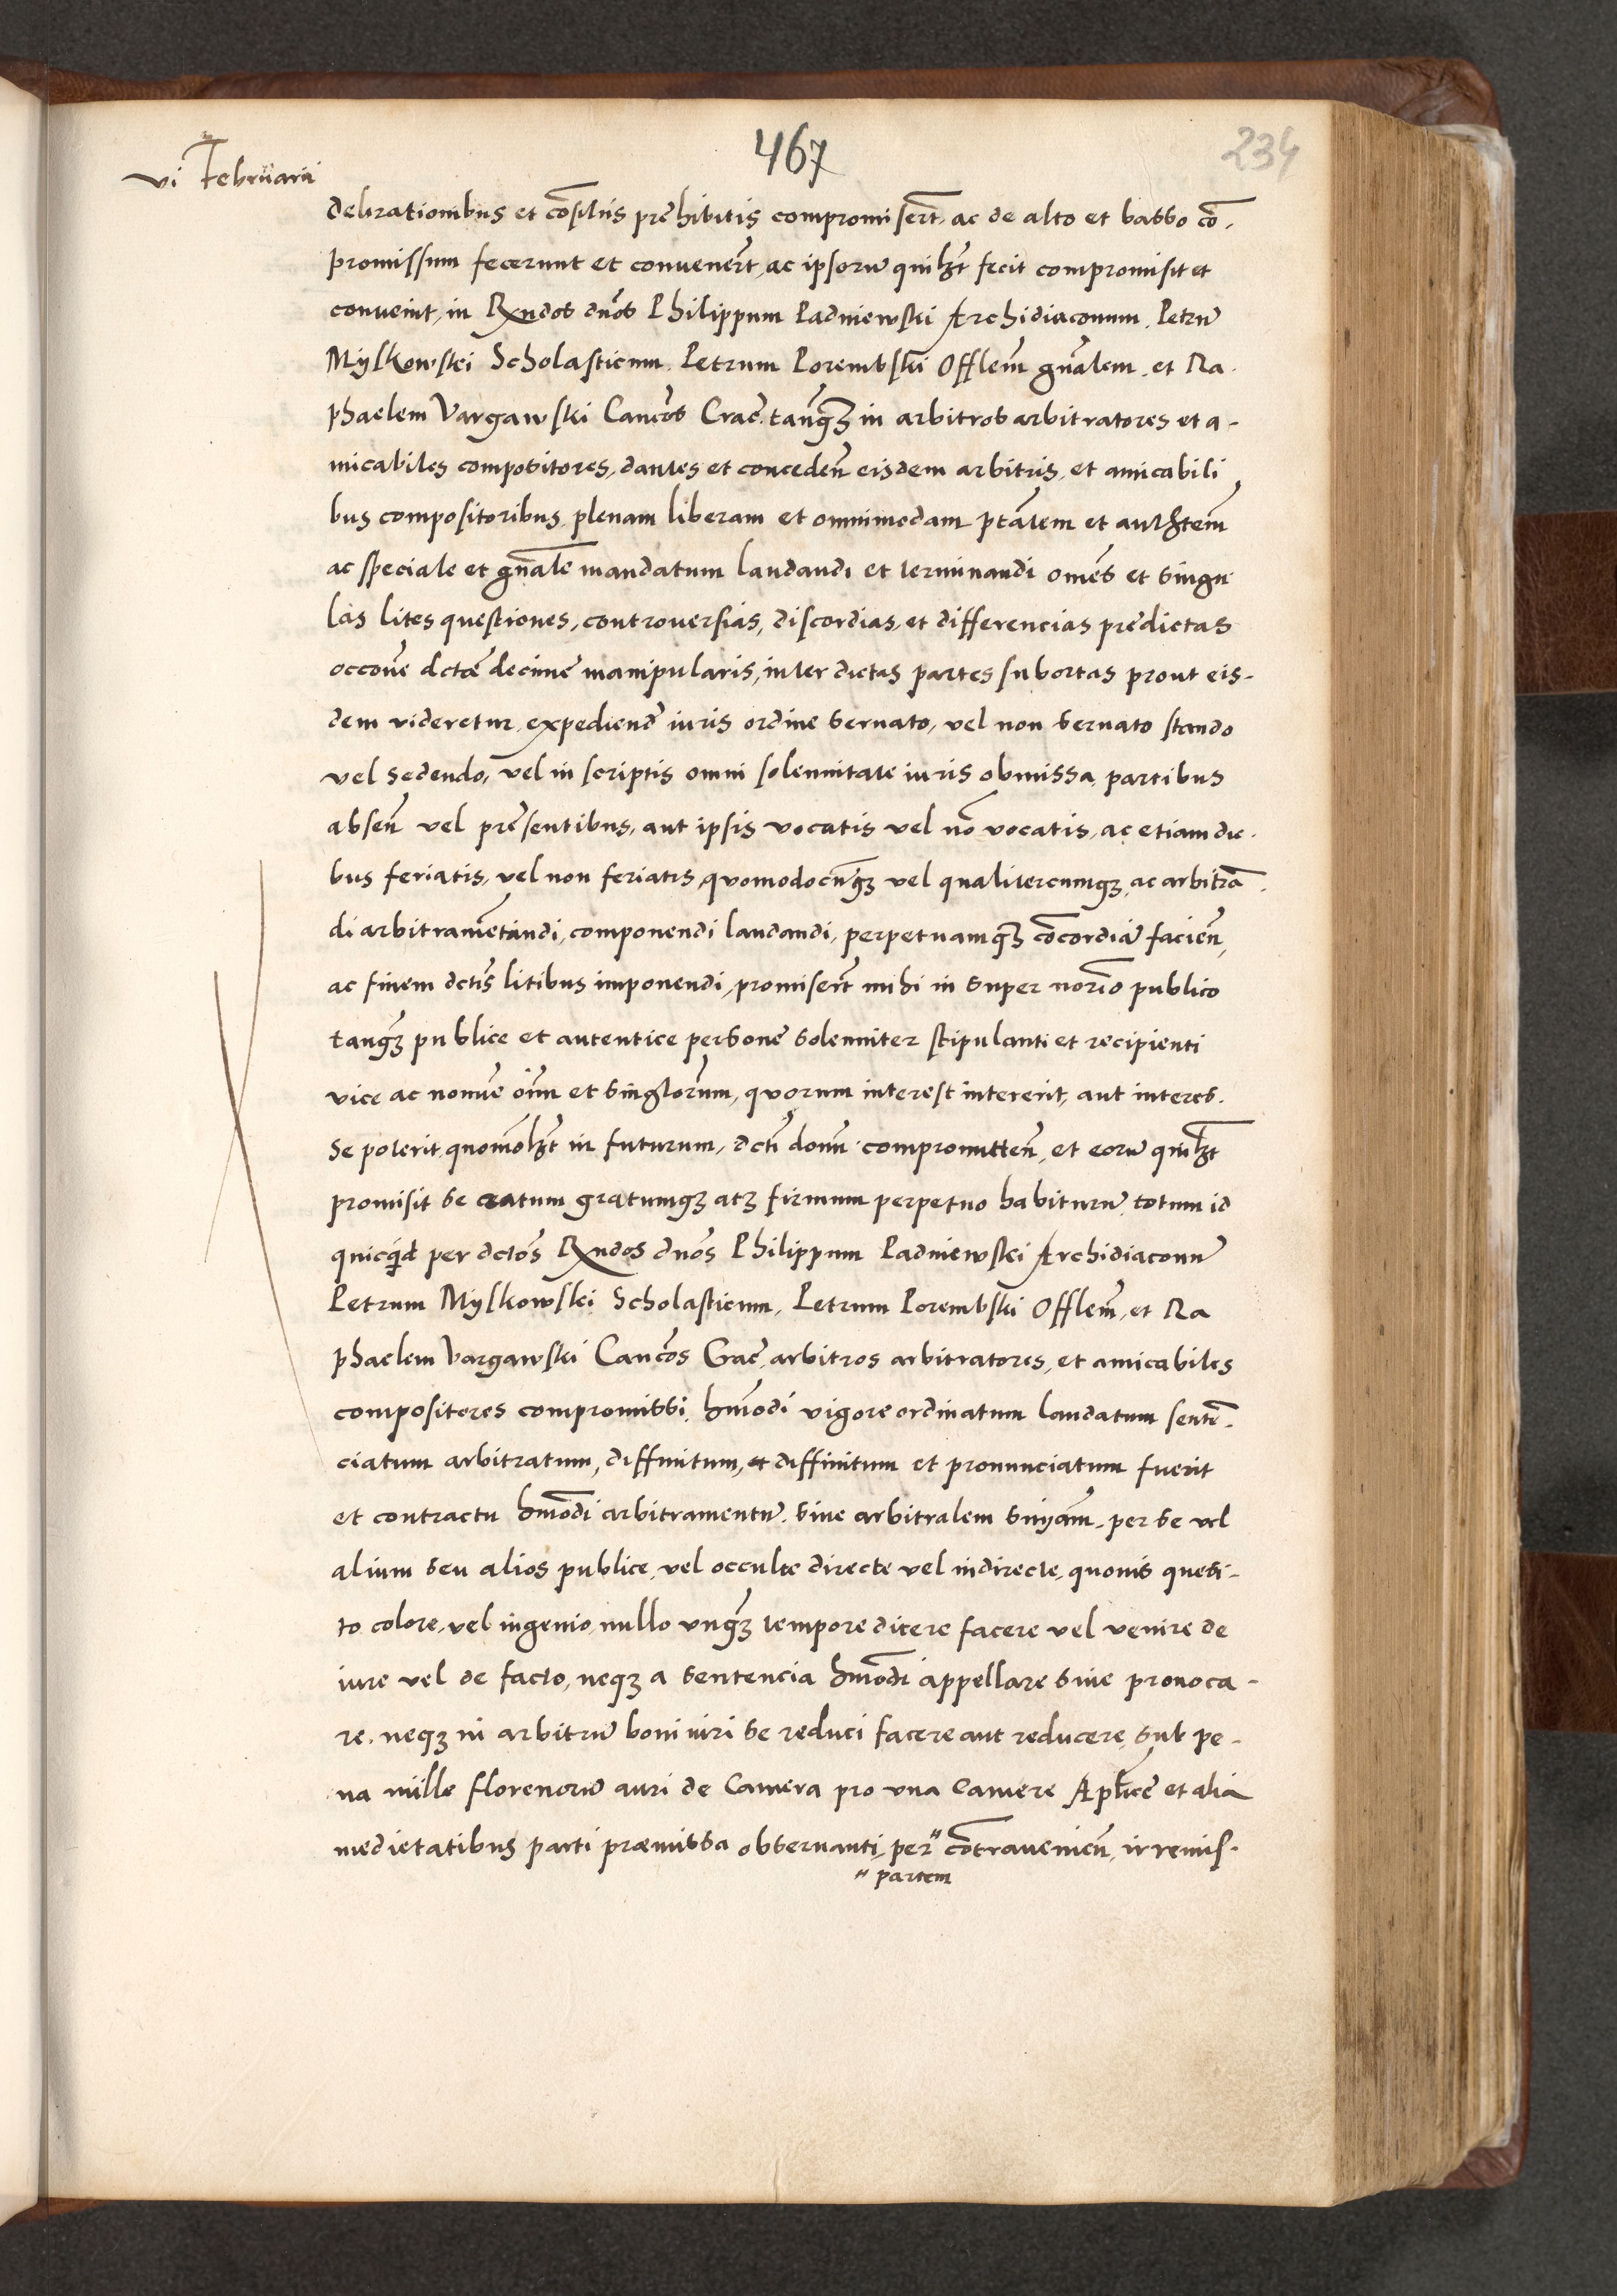 467
234
vi Februarii
delirationibus et cõsiliis prehibitis compromisert̃, ac de alto et basso cõ-
promissum fecerunt et convenert̃, ac ipsorũ quilibʒt fecit compromisit et
convenit, in Rx̃ndos dnõs Philippum Padniewski Archidiaconum, Petrũ
Myskowski Scholasticum, Petrum Porembski Offlem̃ gñalem, et Ra-
phaelem Vargawski Cancõs Crac̃. tanq̃ʒ in arbitros arbitratores et a-
micabiles compositores, dantes et conceden̄ eisdem arbitris, et amicabili
bus compositoribus plenam liberam et omnimodam ptãtem et authtem̃
ac speciale et gñale mandatum laudandi et terminandi omẽs et singu
las lites questiones, controversias, discordias, et differencias predictas
occoñe dctẽ decime manipularis, inter dictas partes subortas prout eis-
dem videretur expediend̃ iuris ordine servato, vel non servato stando
vel sedendo, vel in scriptis omni solennitate iuris obmissa, partibus
absen̄ vel presentibus, aut ipsis vocatis vel nõ vocatis, ac etiam die-
bus feriatis, vel non feriatis, quomodocunqʒ vel qualitercumqʒ, ac arbitrã-
di arbitramẽtandi, componendi laudandi, perpetuamqʒ cõcordiã facien̄,
ac finem dctis̃ litibus imponendi, promisert̃ mihi in super norio̅ publico
tanqʒ̃ publice et autentice persone solenniter stipulanti et recipienti
vice ac nomĩe oĩm et singlorũm, quorum interest intererit, aut interes-
se poterit quomõlibʒt in futurum, dcti domĩ compromitten̄, et eorũ quilibʒt
promisit se ratum gratumqʒ atqʒ firmum perpetuo habiturũ, totum id
quicq̃d per dctos̃ Rx̃ndos dnõs Philippum Padniewski Archidiaconũ
Petrum Myskowski Scholasticum, Petrum Porembski Offlem̃, et Ra
phaelem Vargawski Cancõs Crac̃, arbitros arbitratores, et amicabiles
compositores compromissi, hmõdi vigore ordinatum laudatum sentẽ-
ciatum arbitratum, diffinitum, et diffinitum et pronunciatum fuerit
et contractu hmõdi arbitramentũ, sive arbitralem sniam̃, per se vel
alium seu alios publice, vel occulte directe vel indirecte, quovis quesi-
to colore, vel ingenio, nullo unqʒ̃ tempore dicere facere vel venire de
iure vel de facto, neqʒ a sentencia hmõdi appellare sive provoca-
re, neqʒ in arbitriũ boni viri se reduci facere aut reducere, sub pe-
na mille florenorũ auri de Camera pro una Camere Aplicẽ et alia
medietatibus parti præmissa observanti, per" cõtravenien̄, irremis-
" partem